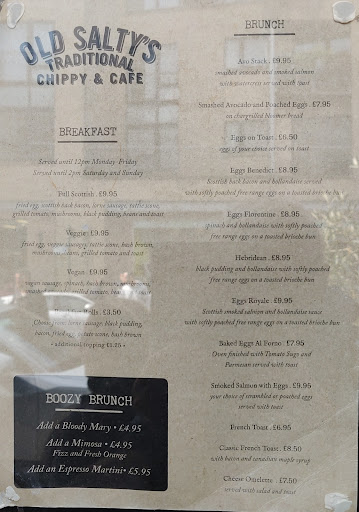 OLD SALTY'S
TRADITIONAL
CHIPPY & CAFE
BREAKFAST
Served until 12pm Monday-Friday
Served until 2pm Saturday and Sunday
Full Scottish . £9.95
fried egg, scottish back bacon, lorne sausage, tattie scone,
grilled tomato, mushrooms, black pudding, beans and toast
Veggie . £9.95
fried egg, veggie sausages, tattie scone, hash brown,
mushrooms, grilled tomato and toast
Vegan . £9.95
vegan sausage, spinach, hash brown, mushrooms,
grilled tomato, beans
Rolls . £3.50
lorne sausage, black pudding,
bacon, fried egg, potato scone, hash brown
• additional topping
BOOZY BRUNCH
Add a Bloody Mary • £4.95
Add a Mimosa • £4.95
Fizz and Fresh Orange
Add an Espresso Martini • £5.95
BRUNCH
Avo Stack . £9.95
smashed avocado and smoked salmon
with watercress served with toast
Smashed Avocado and Poached Eggs . £7.95
on chargrilled bread
Eggs on Toast . £6.50
eggs of your choice served on toast
Eggs Benedict . £8.95
Scottish back bacon and hollandaise served
with softly poached free range eggs on a toasted brioche bun
Eggs Florentine . £8.95
spinach and hollandaise with softly poached
free range eggs on a toasted brioche bun
Hebridean . £8.95
black pudding and hollandaise with softly poached
free range eggs on a toasted brioche bun
Eggs Royale . £9.95
Scottish smoked salmon and hollandaise sauce
with softly poached free range eggs on a toasted brioche bun
Baked Eggs Al Forno . £7.95
Oven finished with Tomato Sugo and
Parmesan served with toast
Smoked Salmon with Eggs . £9.95
your choice of scrambled or poached eggs
served with toast
French Toast . £6.95
Classic French Toast . £8.50
with bacon and canadian maple syrup
Cheese Omelette . £7.50
served with salad and toast